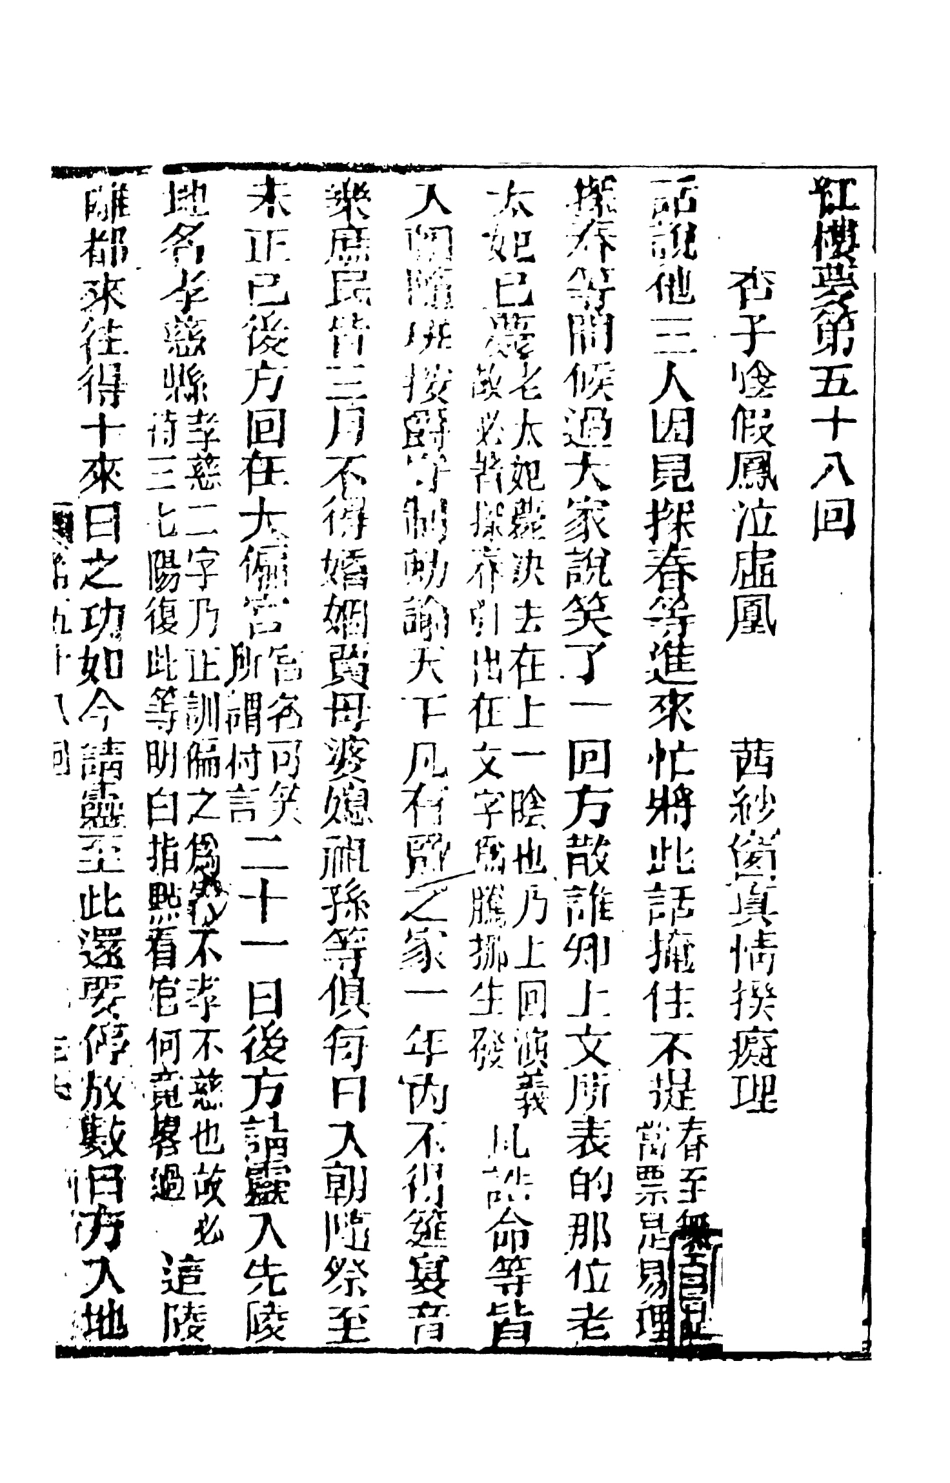 紅樓夢第五十八回
杏子陰假鳳泣虛凰　茜紗窗真情揆癡理
話說他三人因見探春等進來忙將此話掩住不提春至無當票是易理
探春等問候過大家說笑了一回方散誰知上文所表的那位老
太妃已薨老太妃薨決去在上一陰也乃上回演義故必皆探春引出在文字為騰挪生發凡誥命等皆
入朝隨班按爵守制勅諭天下凡有爵之家一年內不得筵宴音
樂庶民皆三月不得婚姻賈母婆媳祖孫等俱每日入朝隨祭至
未正已後方回在大偏宮宮名可笑所謂何言二十一日後方請靈入先陵
地名孝慈縣孝慈二字乃正訓偏之為不孝不慈也故必待三七陽復此等明白指點看官何竟畧過這陵
離都來往得十來日之功如今請靈至此還要停放數日方入地
第五十八回